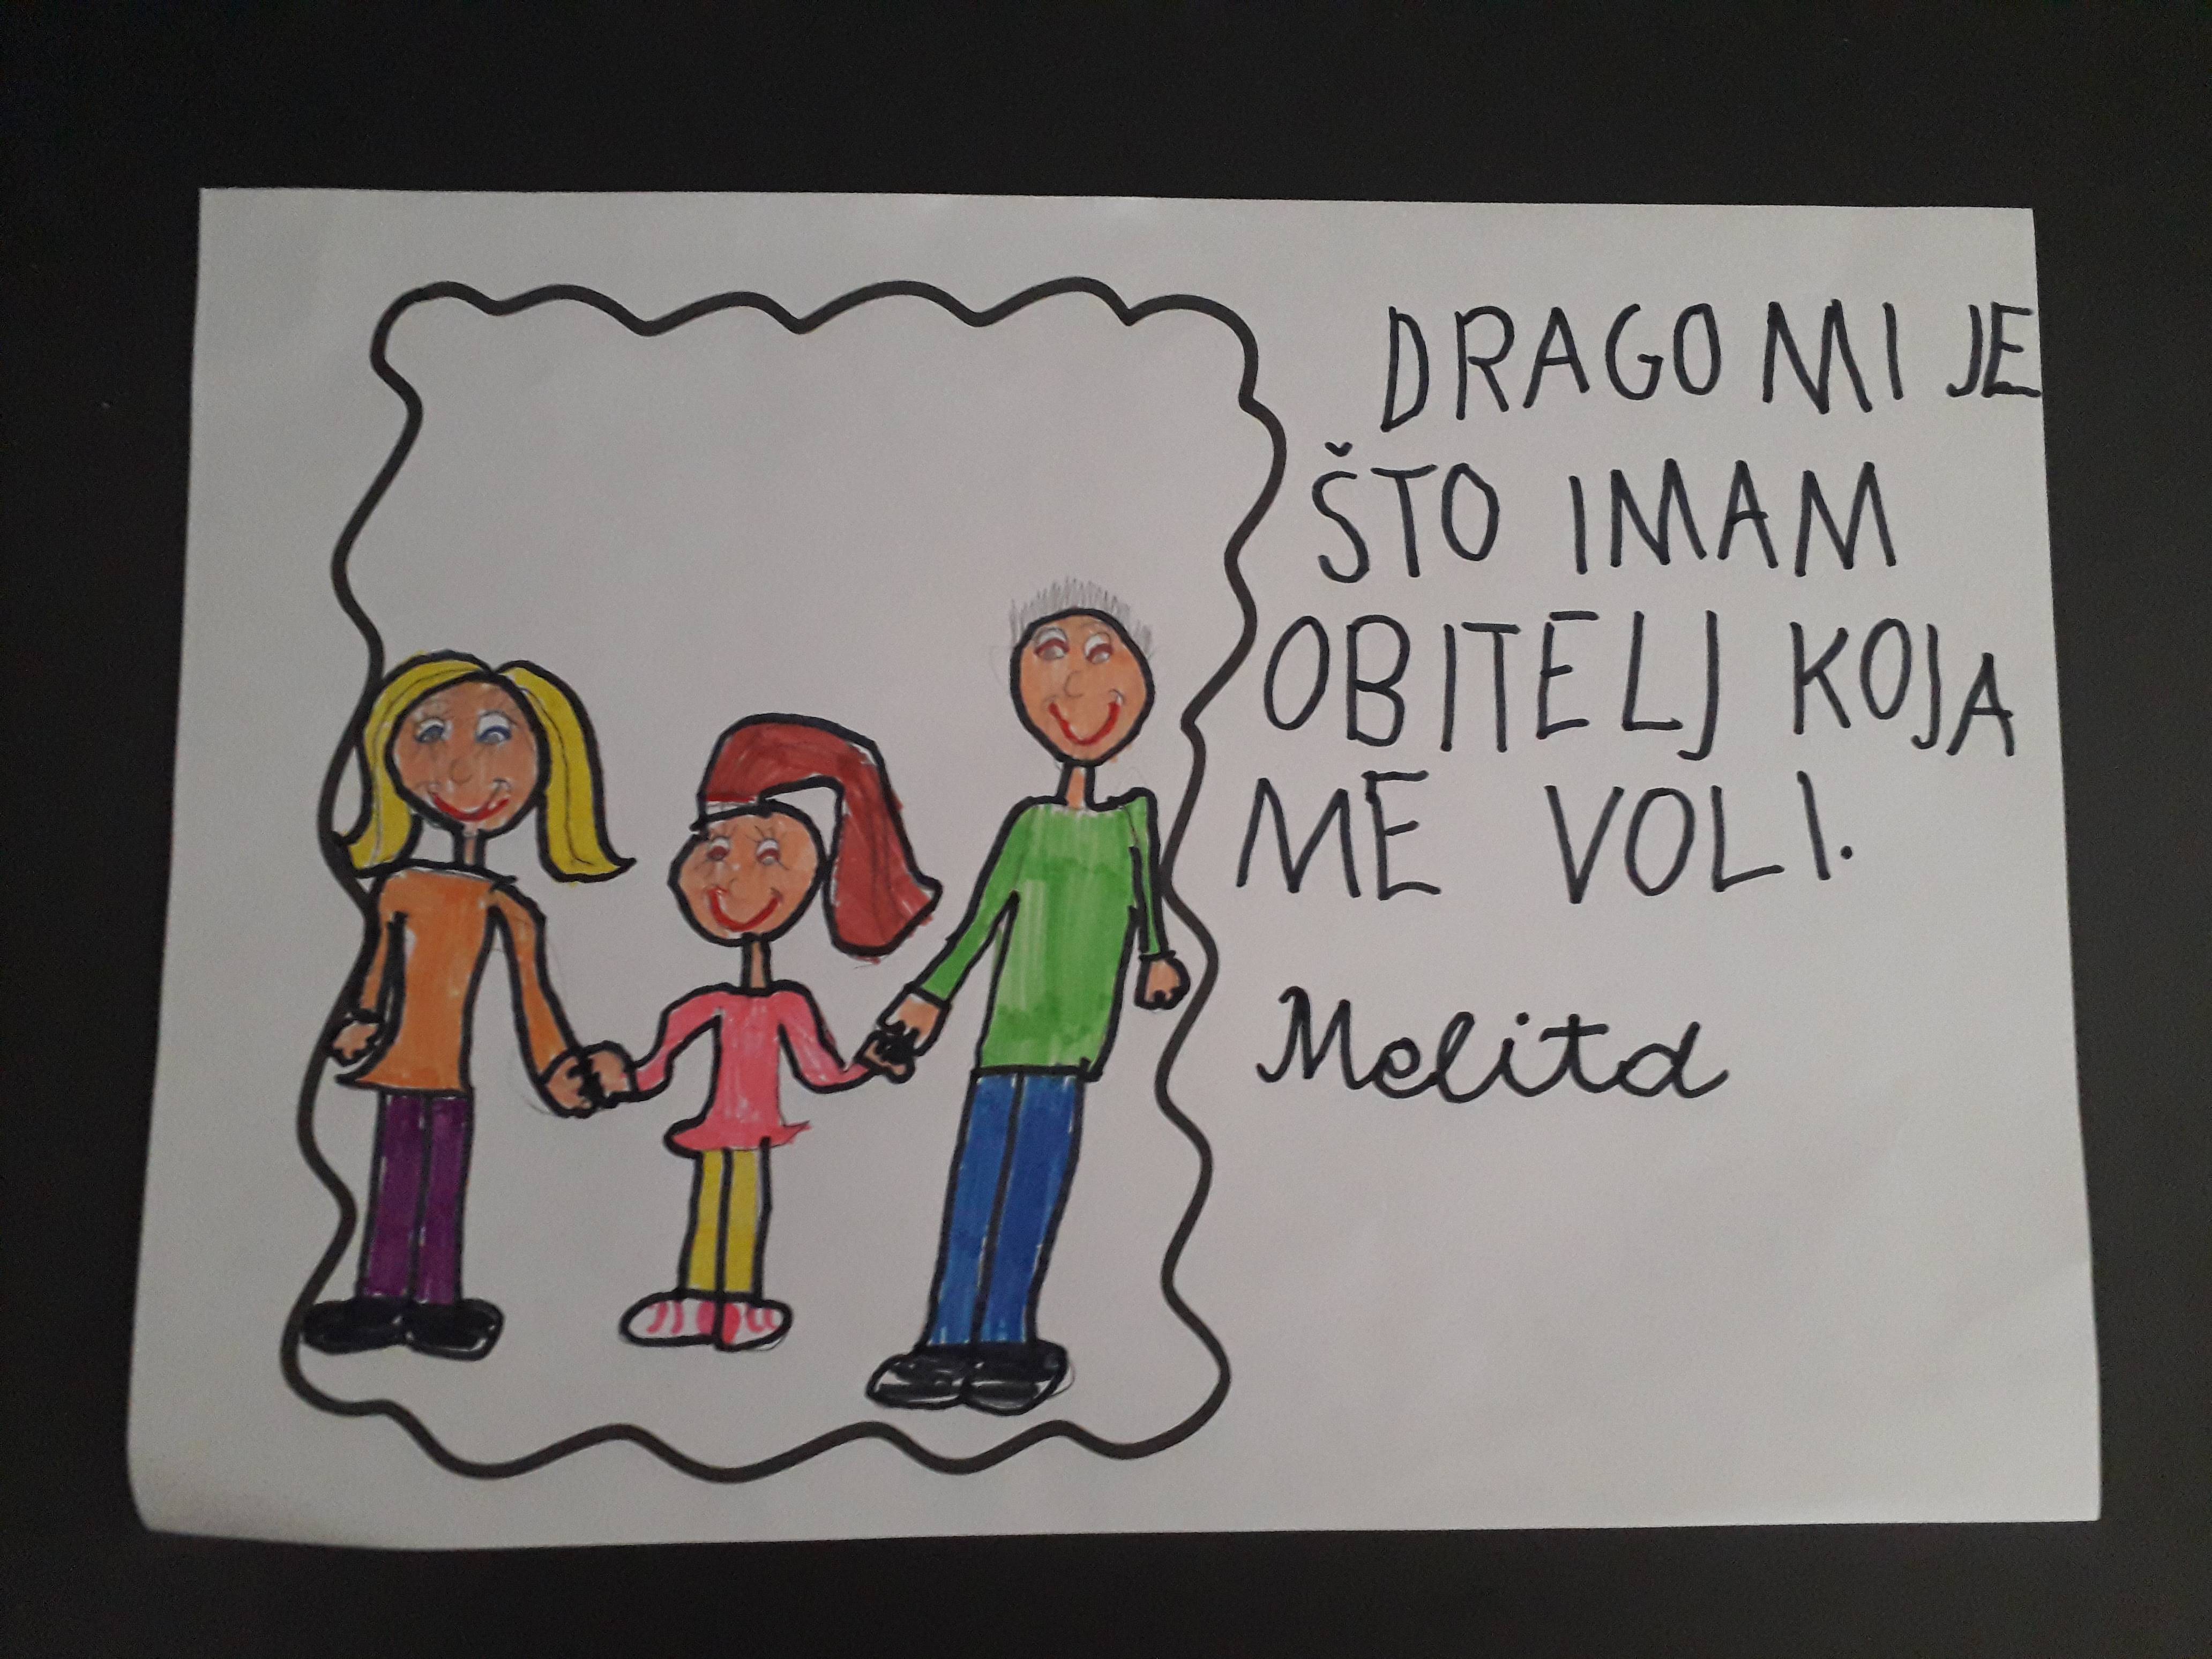 DRAGO MI JE
ŠTO IMAM
OBITELJ KOJA
ME VOLI.
Melita